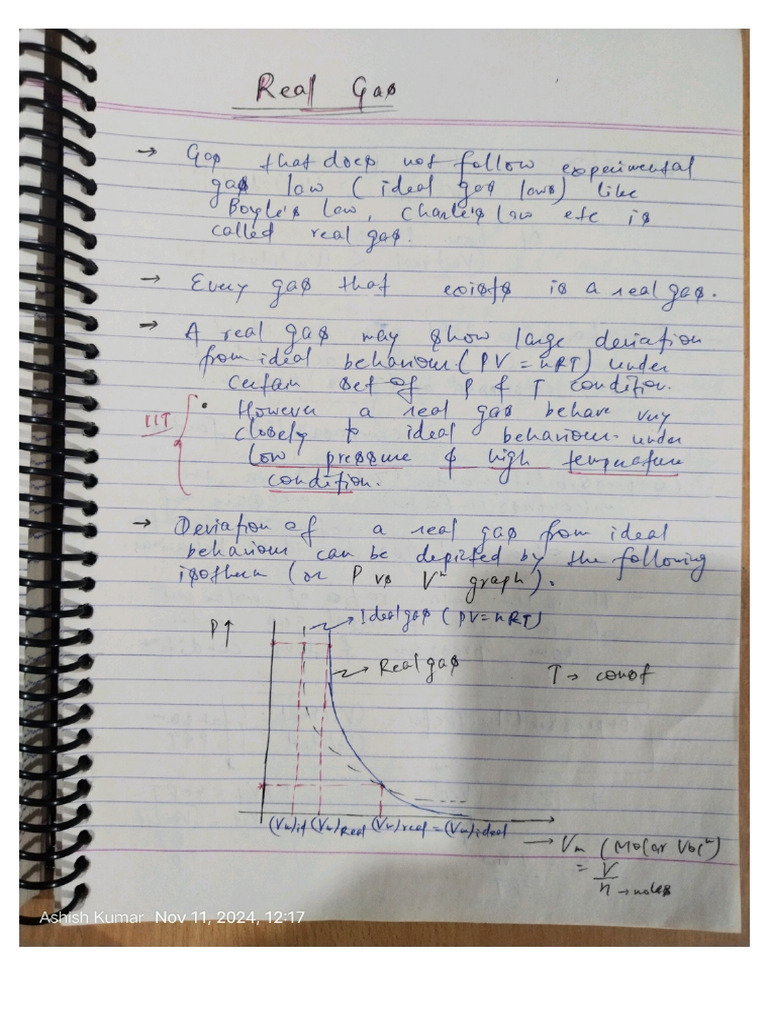 Real Gas
→ Gas that does not follow experimental
gas law (ideal gas laws) like
Boyle's law, Charle's law etc is
called real gas.
→ Every gas that exists is a real gas.
→ A real gas may show large deviation
from ideal behaviour (PV = nRT) under
certain set of P & T condition.
IIT
• However a real gas behave very
closely to ideal behaviour under
low pressure & high temperature
condition.
→ Deviation of a real gas from ideal
behaviour can be depicted by the following
isotherm (or P vs Vⁿ graph).
P↑
→ Ideal gas (PV = nRT)
→ Real gas
T → const
(Vm)id (Vm)Real (Vm)real = (Vm)ideal
→ Vm (Molar Volⁿ)
= V
n → moles
Ashish Kumar Nov 11, 2024, 12:17